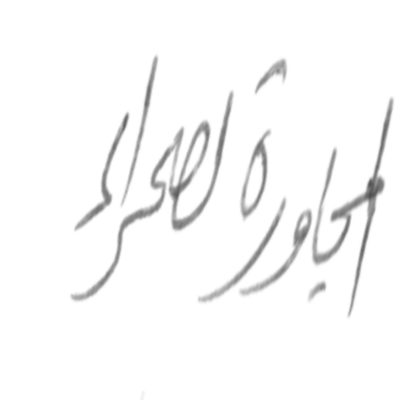 المجاورة للصحراء